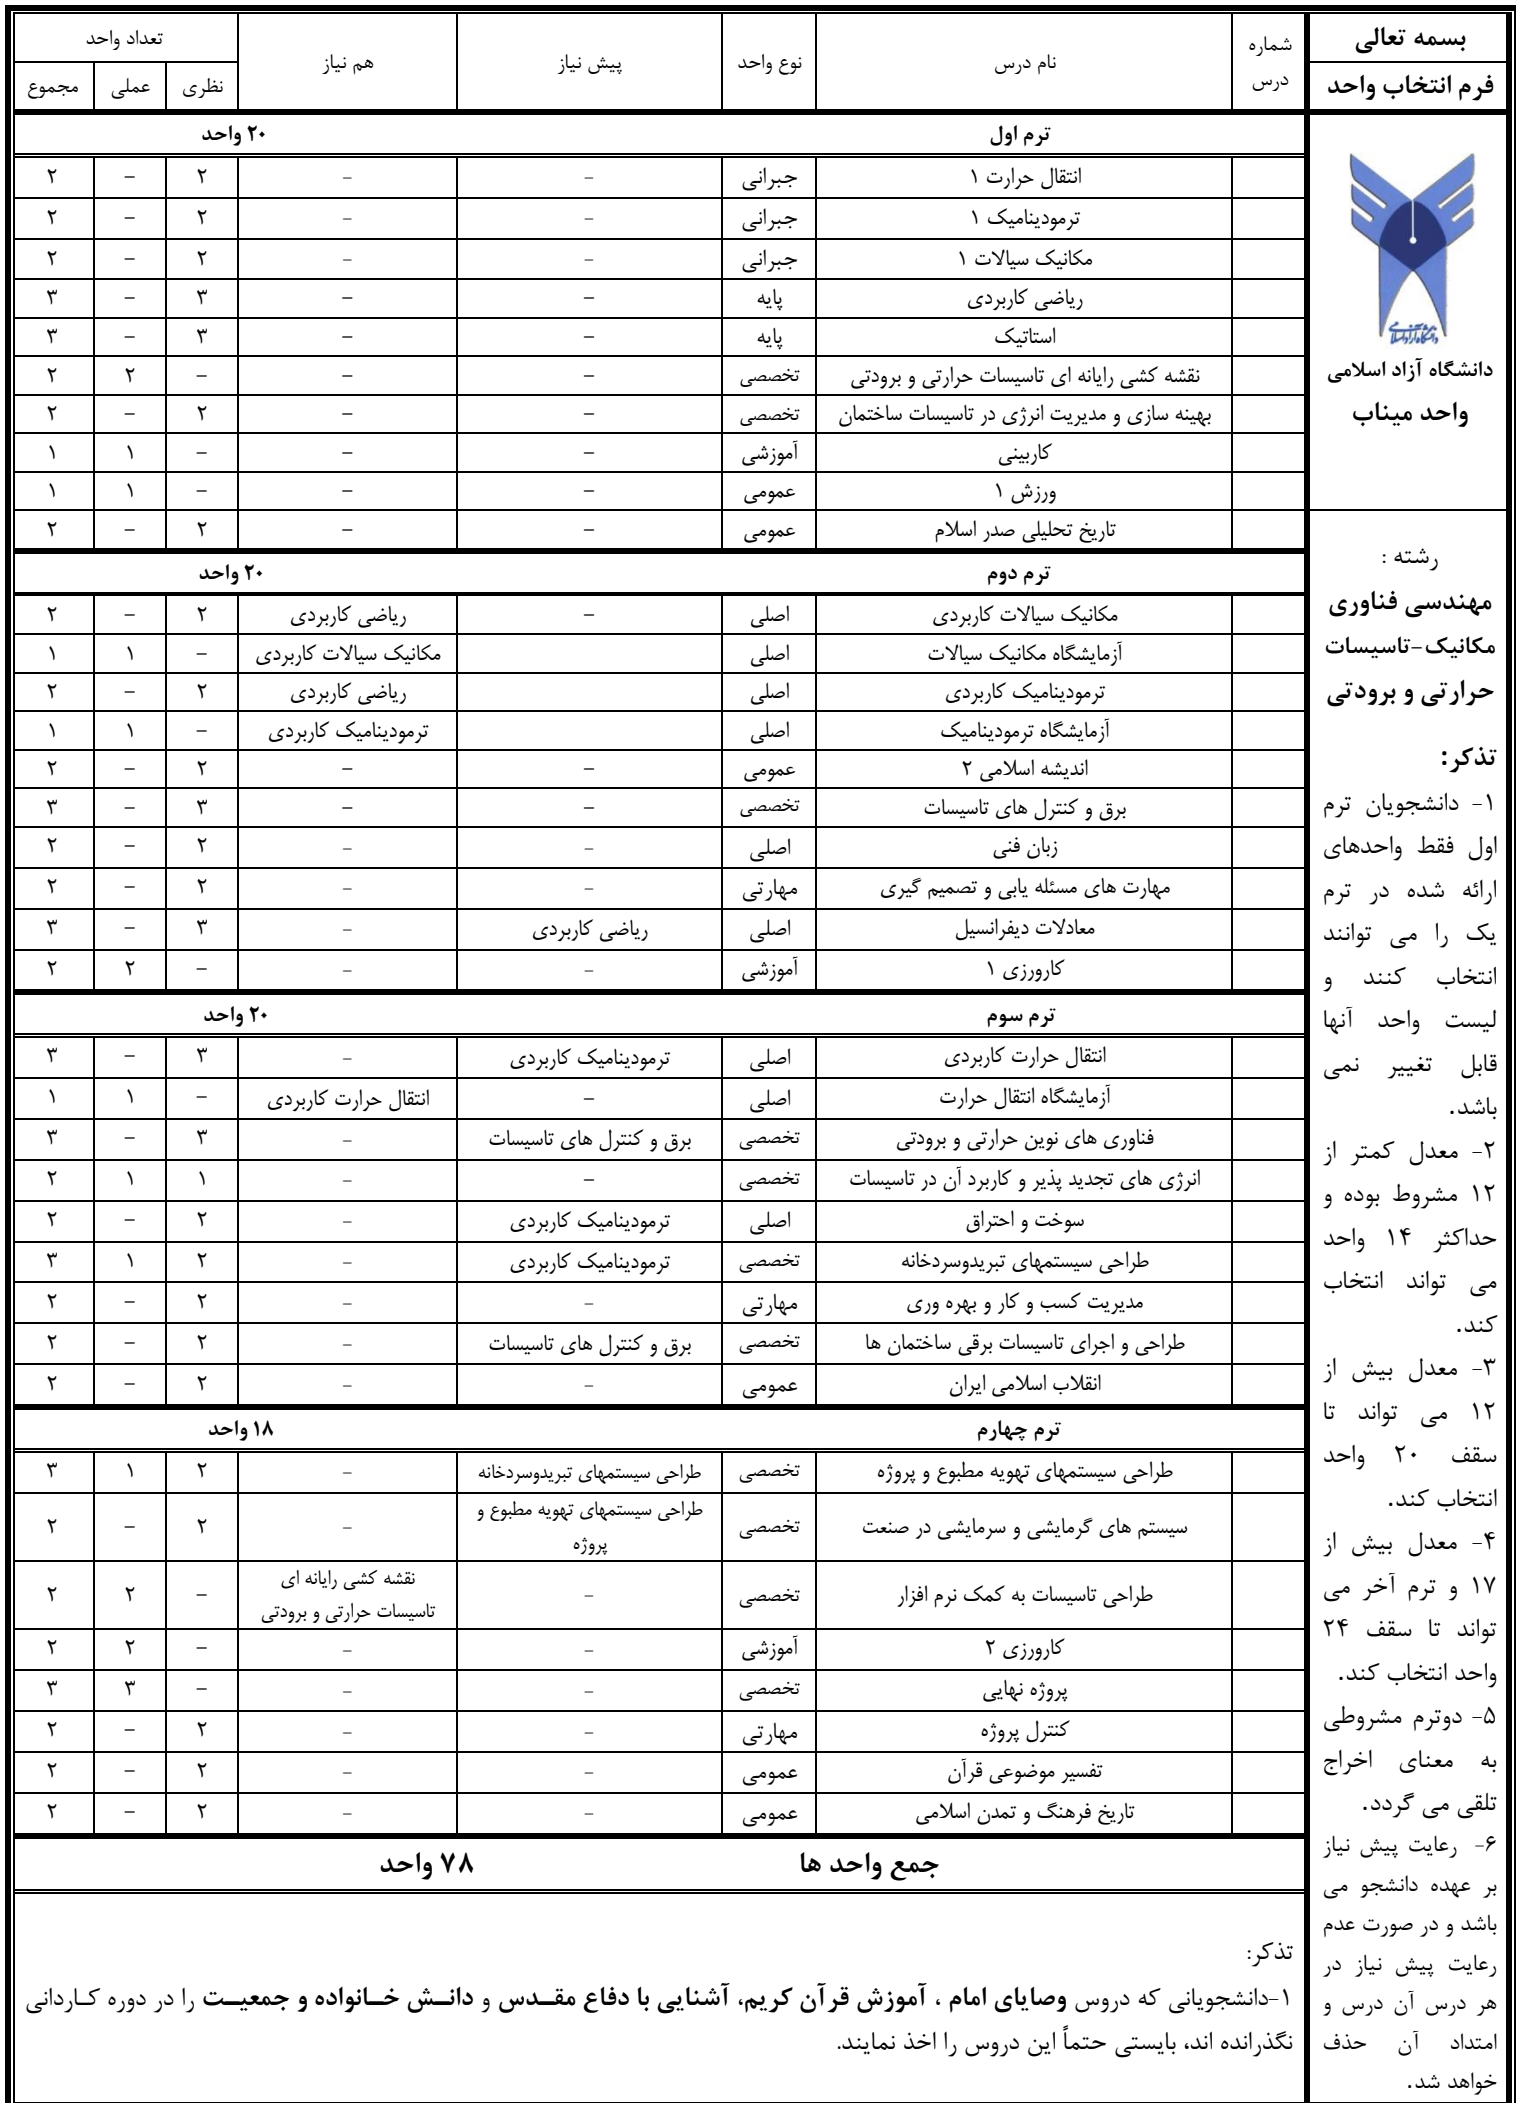 بسمه تعالی
فرم انتخاب واحد
دانشگاه آزاد اسلامی
دانشگاه آزاد اسلامی
واحد میناب
رشته :
مهندسی فناوری
مکانیک-تاسیسات
حرارتی و برودتی
تذکر:
۱- دانشجویان ترم
اول فقط واحدهای
ارائه شده در ترم
یک را می توانند
انتخاب کنند و
لیست واحد آنها
قابل تغییر نمی
باشد.
۲- معدل کمتر از
۱۲ مشروط بوده و
حداکثر ۱۴ واحد
می تواند انتخاب
کند.
۳- معدل بیش از
۱۲ می تواند تا
سقف ۲۰ واحد
انتخاب کند.
۴- معدل بیش از
۱۷ و ترم آخر می
تواند تا سقف ۲۴
واحد انتخاب کند.
۵- دوترم مشروطی
به معنای اخراج
تلقی می گردد.
۶- رعایت پیش نیاز
بر عهده دانشجو می
باشد و در صورت عدم
رعایت پیش نیاز در
هر درس آن درس و
امتداد آن حذف
خواهد شد.
شماره درس نام درس نوع واحد پیش نیاز هم نیاز تعداد واحد
نظری عملی مجموع
ترم اول ۲۰ واحد
انتقال حرارت ۱ جبرانی - - ۲ - ۲
ترمودینامیک ۱ جبرانی - - ۲ - ۲
مکانیک سیالات ۱ جبرانی - - ۲ - ۲
ریاضی کاربردی پایه - - ۳ - ۳
استاتیک پایه - - ۳ - ۳
نقشه کشی رایانه ای تاسیسات حرارتی و برودتی تخصصی - - - ۲ ۲
بهینه سازی و مدیریت انرژی در تاسیسات ساختمان تخصصی - - ۲ - ۲
کاربینی آموزشی - - - ۱ ۱
ورزش ۱ عمومی - - - ۱ ۱
تاریخ تحلیلی صدر اسلام عمومی - - ۲ - ۲
ترم دوم ۲۰ واحد
مکانیک سیالات کاربردی اصلی - ریاضی کاربردی ۲ - ۲
آزمایشگاه مکانیک سیالات اصلی مکانیک سیالات کاربردی - ۱ ۱
ترمودینامیک کاربردی اصلی ریاضی کاربردی ۲ - ۲
آزمایشگاه ترمودینامیک اصلی ترمودینامیک کاربردی - ۱ ۱
اندیشه اسلامی ۲ عمومی - - ۲ - ۲
برق و کنترل های تاسیسات تخصصی - - ۳ - ۳
زبان فنی اصلی - - ۲ - ۲
مهارت های مسئله یابی و تصمیم گیری مهارتی - - ۲ - ۲
معادلات دیفرانسیل اصلی ریاضی کاربردی - ۳ - ۳
کارورزی ۱ آموزشی - - - ۲ ۲
ترم سوم ۲۰ واحد
انتقال حرارت کاربردی اصلی ترمودینامیک کاربردی - ۳ - ۳
آزمایشگاه انتقال حرارت اصلی - انتقال حرارت کاربردی - ۱ ۱
فناوری های نوین حرارتی و برودتی تخصصی برق و کنترل های تاسیسات - ۳ - ۳
انرژی های تجدید پذیر و کاربرد آن در تاسیسات تخصصی - - ۱ ۱ ۲
سوخت و احتراق اصلی ترمودینامیک کاربردی - ۲ - ۲
طراحی سیستمهای تبریدوسردخانه تخصصی ترمودینامیک کاربردی - ۲ ۱ ۳
مدیریت کسب و کار و بهره وری مهارتی - - ۲ - ۲
طراحی و اجرای تاسیسات برقی ساختمان ها تخصصی برق و کنترل های تاسیسات - ۲ - ۲
انقلاب اسلامی ایران عمومی - - ۲ - ۲
ترم چهارم ۱۸ واحد
طراحی سیستمهای تهویه مطبوع و پروژه تخصصی طراحی سیستمهای تبریدوسردخانه - ۲ ۱ ۳
سیستم های گرمایشی و سرمایشی در صنعت تخصصی طراحی سیستمهای تهویه مطبوع و پروژه - ۲ - ۲
طراحی تاسیسات به کمک نرم افزار تخصصی - نقشه کشی رایانه ای تاسیسات حرارتی و برودتی - ۲ ۲
کارورزی ۲ آموزشی - - - ۲ ۲
پروژه نهایی تخصصی - - - ۳ ۳
کنترل پروژه مهارتی - - ۲ - ۲
تفسیر موضوعی قرآن عمومی - - ۲ - ۲
تاریخ فرهنگ و تمدن اسلامی عمومی - - ۲ - ۲
جمع واحد ها ۷۸ واحد
تذکر:
۱-دانشجویانی که دروس وصایای امام ، آموزش قرآن کریم، آشنایی با دفاع مقدس و دانش خانواده و جمعیت را در دوره کاردانی
نگذرانده اند، بایستی حتماً این دروس را اخذ نمایند.